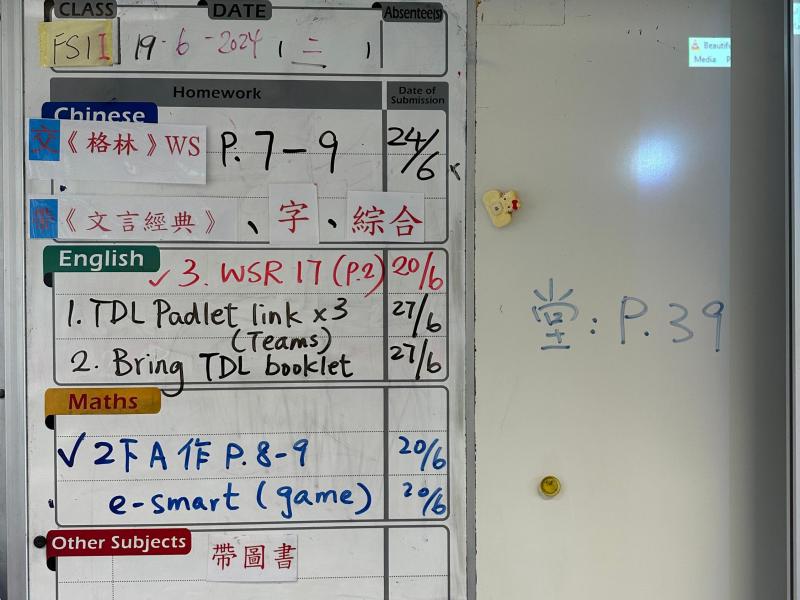 CLASS DATE Absentee(s)
FS1I 19-6-2024 (二)
Homework Date of Submission
Chinese
交《格林》WS P.7-9 24/6
帶《文言經典》、字、綜合
English
✓3. WSR 17 (P.2) 20/6
1. TDL Padlet link x3 27/6
(Teams)
2. Bring TDL booklet 27/6
Maths
✓2下A作 P.8-9 20/6
e-smart (game) 20/6
Other Subjects
帶圖書
堂: P.39
Media